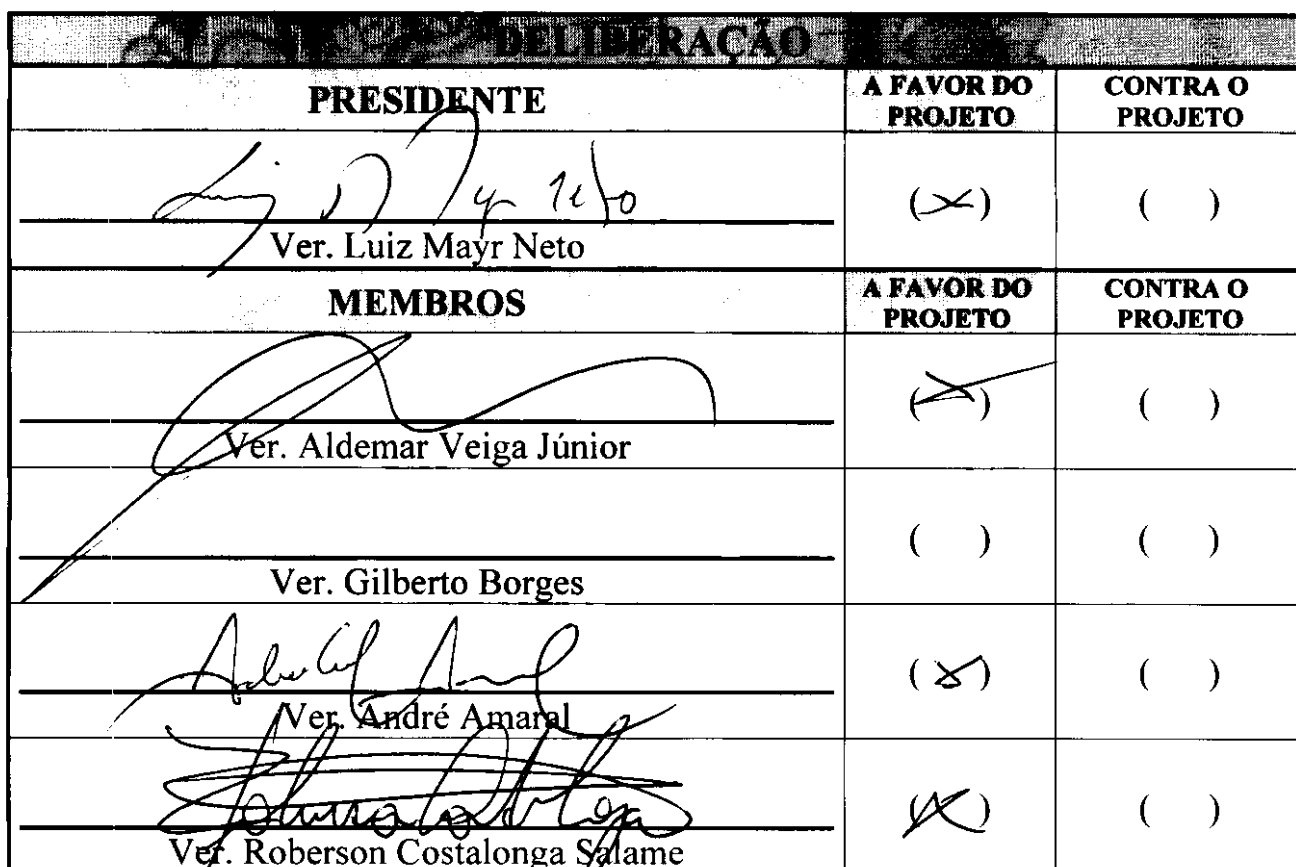 DELIBERAÇÃO
PRESIDENTE
A FAVOR DO
PROJETO
CONTRA O
PROJETO
(X)
( )
Ver. Luiz Mayr Neto
MEMBROS
A FAVOR DO
PROJETO
CONTRA O
PROJETO
(X)
( )
Ver. Aldemar Veiga Júnior
( )
( )
Ver. Gilberto Borges
(X)
( )
Ver. André Amaral
(X)
( )
Ver. Roberson Costalonga Salame